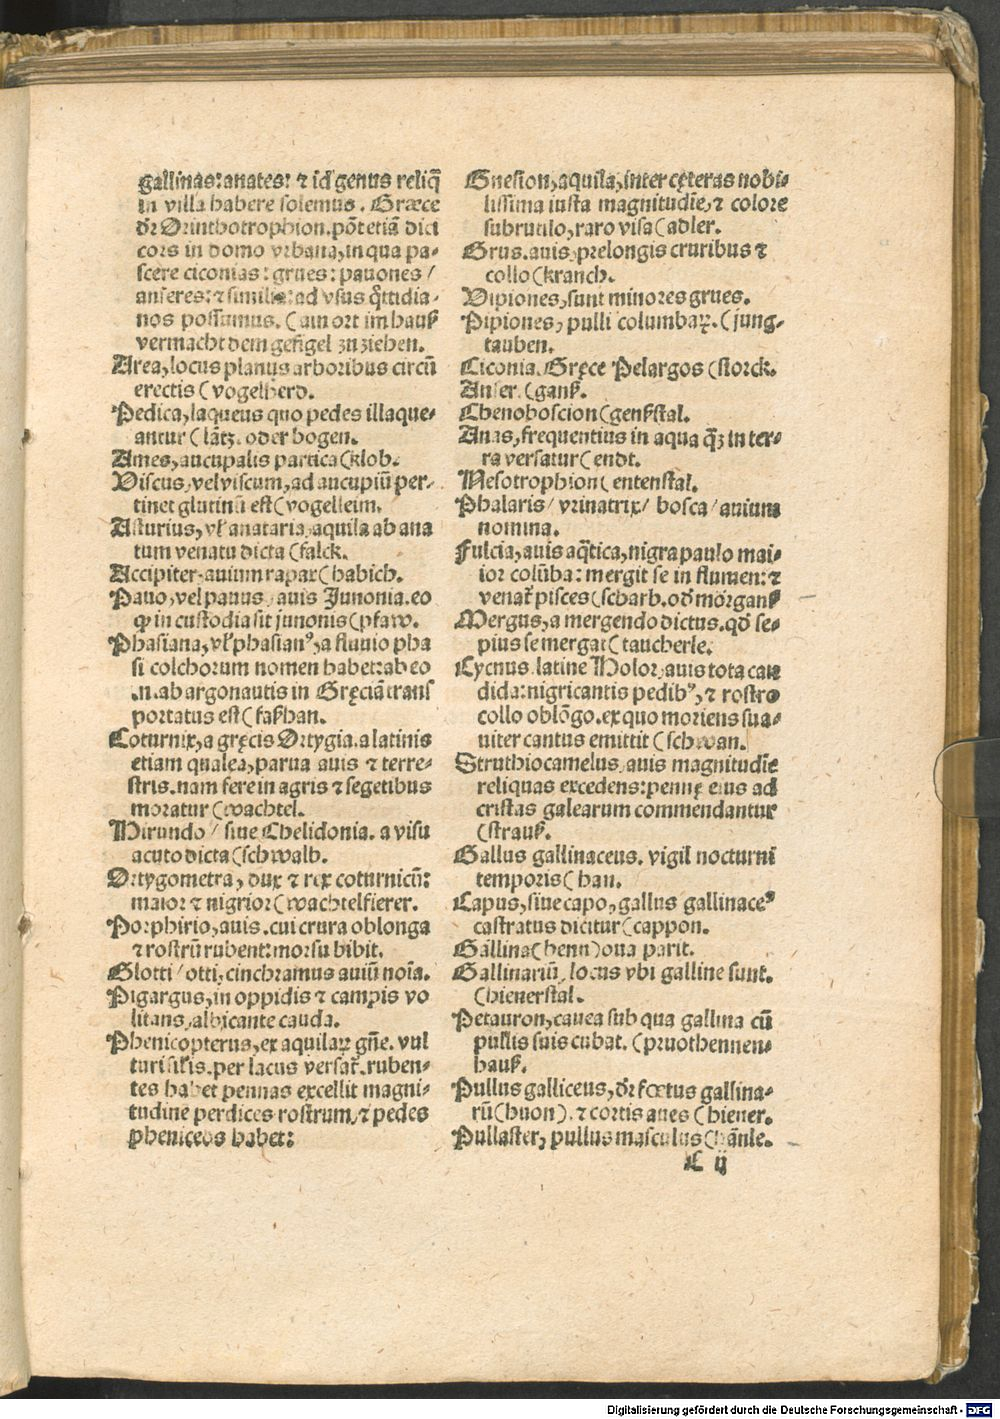 gallinas: anates: ⁊ id genus reliq̃
in villa habere solemus. Græce
dr̃ Ornithotrophion. põt etiã dici
cors in domo vrbana, in qua pa-
scere ciconias: grues: pauones /
anseres: ⁊ similia: ad vsus q̃ttidia-
nos possumus. (ain ort im hauß
vermacht dem gefigel zu ziehen.
Area, locus planus arboribus circũ
erectis (vogelherd.
Pedica, laqueus quo pedes illaque-
antur (lãtz. oder bogen.
Ames, aucupalis partica (klob.
Viscus, vel viscum, ad aucupiũ per-
tinet glutinũ est (vogelleim.
Asturius, vl̃ anataria, aquila ab ana
tum venatu dicta (falck.
Accipiter. auium rapax (habich.
Pauo, vel pauus, auis Junonia. eo
ꝙ in custodia sit junonis (pfaw.
Phasiana, vl̃ phasianꝰ, a fluuio pha
si colchorum nomen habet: ab eo
.n. ab argonautis in Gręciã trans
portatus est (faßhan.
Coturnix, a gręcis Ortygia. a latinis
etiam qualea, parua auis ⁊ terre-
stris. nam fere in agris ⁊ segetibus
moratur (wachtel.
Hirundo / siue Chelidonia. a visu
acuto dicta (schwalb.
Ortygometra, dux ⁊ rex coturnicũ:
maior ⁊ nigrior (wachtelfierer.
Porphirio, auis. cui crura oblonga
⁊ rostrũ rubent: morsu bibit.
Glotti / otti, cinchramus auiũ noĩa.
Pigargus, in oppidis ⁊ campis vo
litans, albicante cauda.
Phenicopterus, ex aquilaꝝ gñe. vul
turi sil̃is. per lacus versat̃. ruben-
tes habet pennas excellit magni-
tudine perdices rostrum, ⁊ pedes
pheniceos habet:
Gnesion, aquila, inter cęteras nobi-
lissima iusta magnitudĩe, ⁊ colore
subrutilo, raro visa (adler.
Grus. auis, prelongis cruribus ⁊
collo (kranch.
Vipiones, sunt minores grues.
Pipiones, pulli columbaꝝ. (jung-
tauben.
Ciconia. Gręce Pelargos (storck.
Anser. (ganß.
Chenoboscion (genßstal.
Anas, frequentius in aqua q̃ꝫ in ter-
ra versatur (endt.
Nesotrophion (entenstal.
Phalaris / vrinatrix / bosca / auium
nomina.
Fulcia, auis aq̃tica, nigra paulo mai-
ior colũba: mergit se in flumen: ⁊
venat̃ pisces (scharb. od̃ mörganß
Mergus, a mergendo dictus. qd̃ se-
pius se mergat (taucherle.
Cycnus. latine Holor, auis tota can
dida: nigricantis pedibꝰ, ⁊ rostro
collo oblõgo. ex quo moriens sua-
uiter cantus emittit (schwan.
Struthiocamelus. auis magnitudĩe
reliquas excedens: pennę eius ad
cristas galearum commendantur
(strauß.
Gallus gallinaceus. vigil nocturni
temporis (han.
Capus, siue capo, gallus gallinaceꝰ
castratus dicitur (cappon.
Gallina (henn) oua parit.
Gallinariũ, locus vbi galline sunt.
(hienerstal.
Petauron, cauea sub qua gallina cũ
pullis suis cubat. (pruothennen-
hauß.
Pullus galliceus, dr̃ fœtus gallina-
rũ (huon). ⁊ cortis aues (hiener.
Pullaster, pullus masculus (hãnle.
C ij
Digitalisierung gefördert durch die Deutsche Forschungsgemeinschaft - DFG